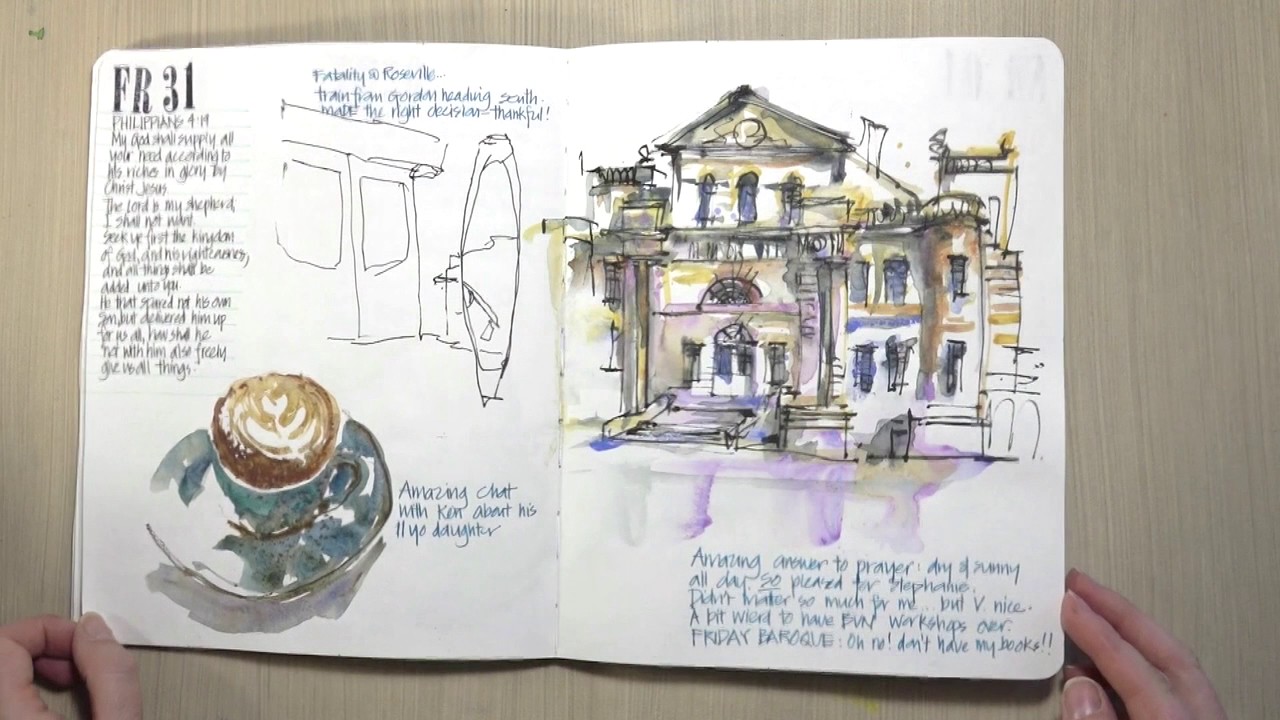 FR 31
PHILIPPIANS 4:19
My God shall supply all
your need according to
his riches in glory by
Christ Jesus.
The Lord is my shepherd,
I shall not want.
Seek ye first the kingdom
of God, and his righteousness,
and all things shall be
added unto you.
He that spared not his own
son, but delivered him up
for us all, how shall he
not with him also freely
give us all things.
Fatality @ Roseville...
train from Gordon heading south.
made the right decision - thankful!
Amazing chat
with Ken about his
11 yo daughter
Amazing answer to prayer: dry & sunny
all day. SO pleased for Stephanie.
Didn't matter so much for me... but V. nice.
A bit wierd to have BVN workshops over.
FRIDAY BAROQUE: Oh no! don't have my books!!